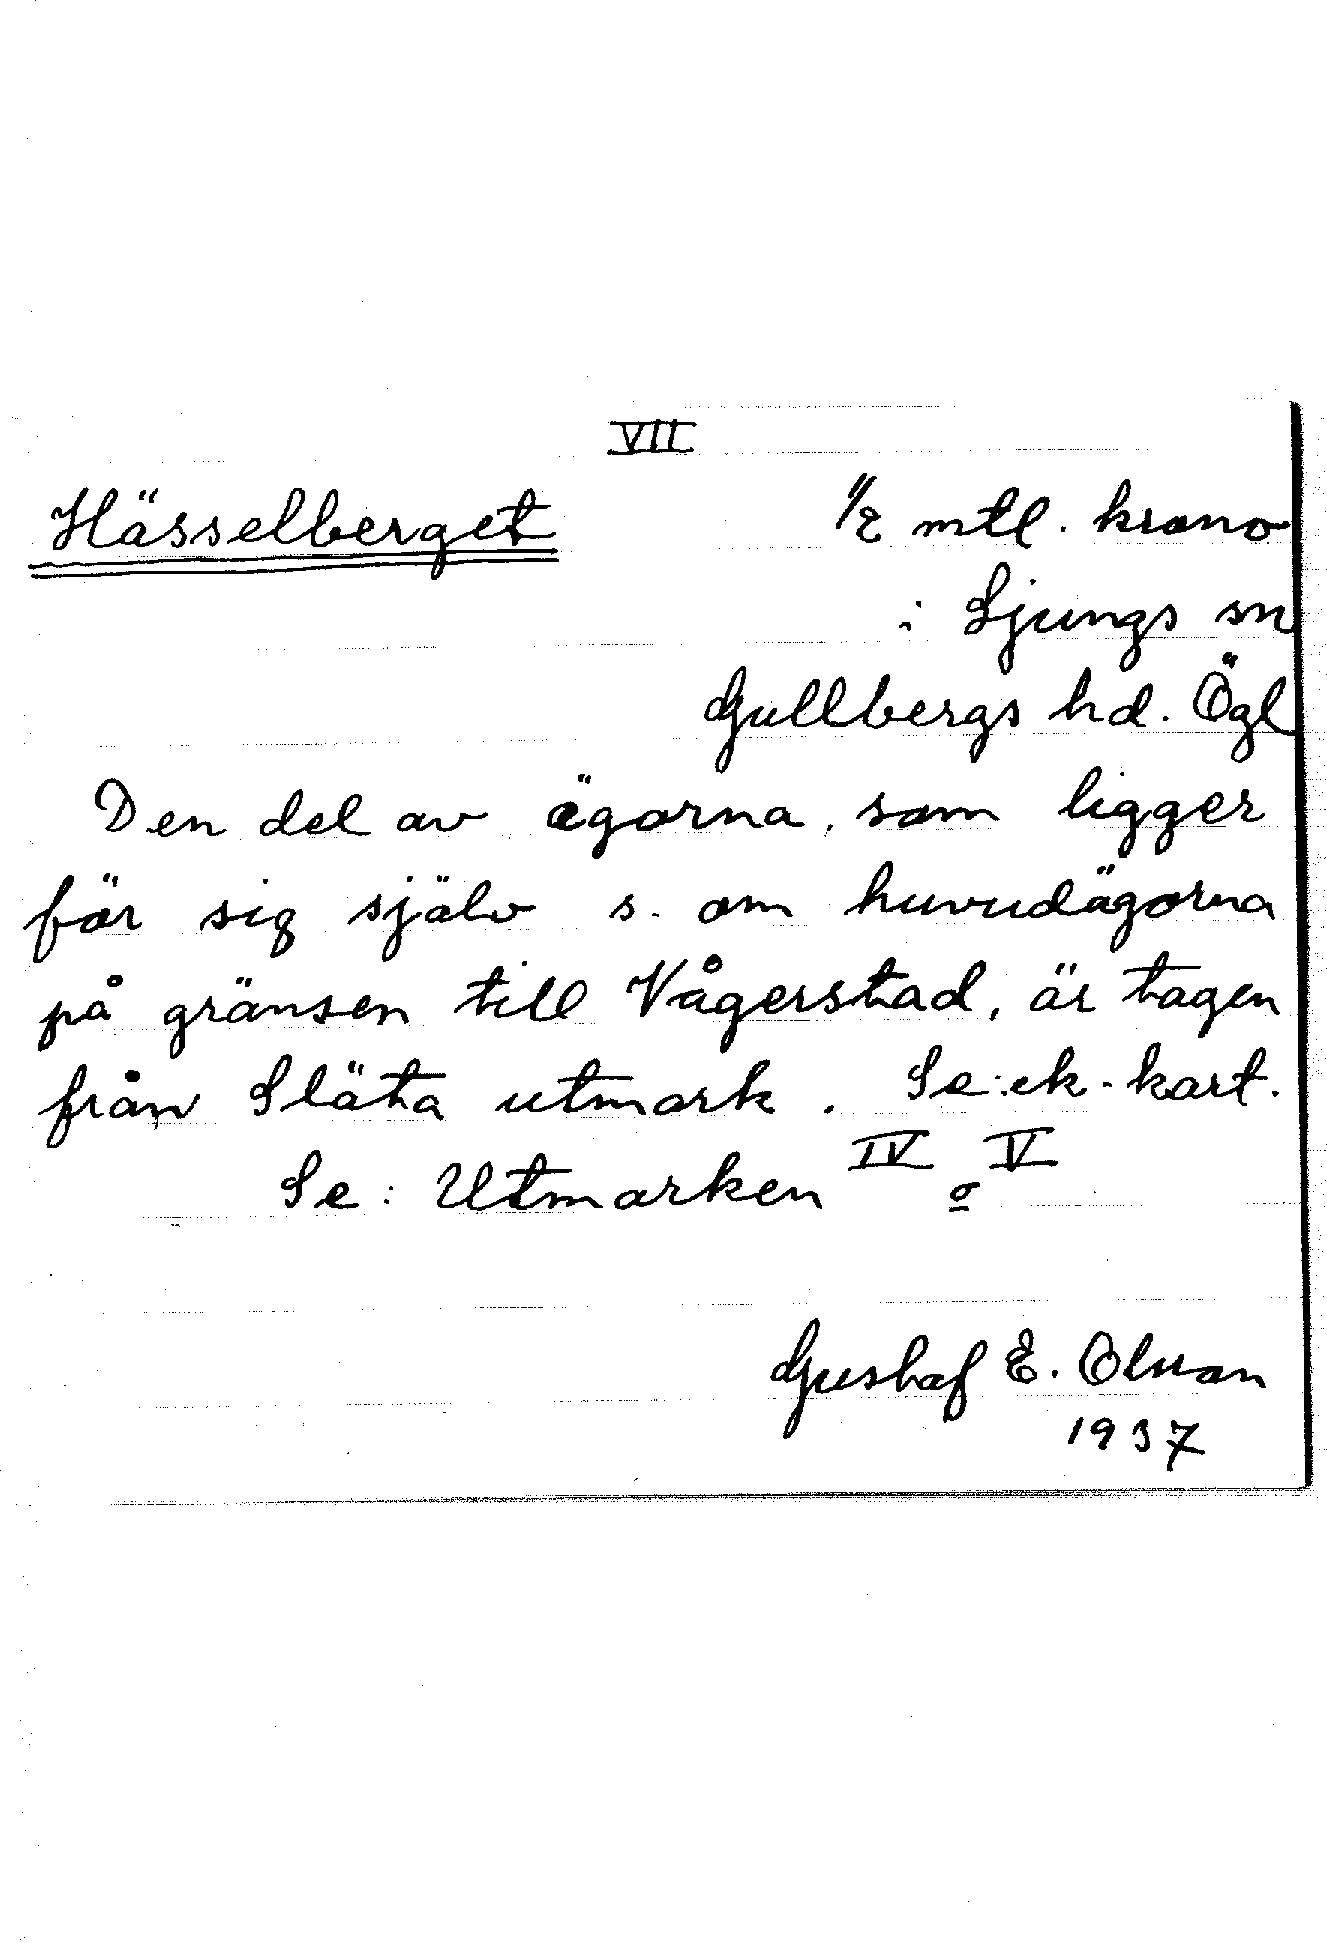 VII
Hässelberget 1/2 mtl. krono
i Ljungs sn
Gullbergs hd. Ögl
Den del av ägorna, som ligger
för sig själv s. om huvudägorna
på gränsen till Vågerstad, är tagen
från Släta utmark. Se: ek-kart.
Se: Utmarken IV o V
Gustaf E. Olsson
1937